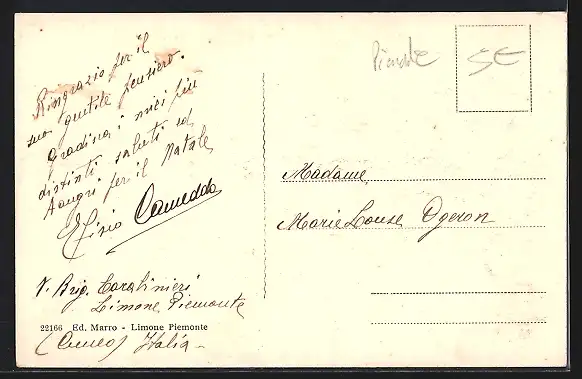 Ringrazio per il
suo gentile pensiero.
Gradina i miei più
distinti saluti ed
Aauguri per il Natale
Efisio Camedda
V. Brig. Carabinieri
Limone Piemonte
22166 Ed. Marro - Limone Piemonte
(Cuneo) Italia -
Piemonte
5€
Madame,
Marie Louse Ogeron